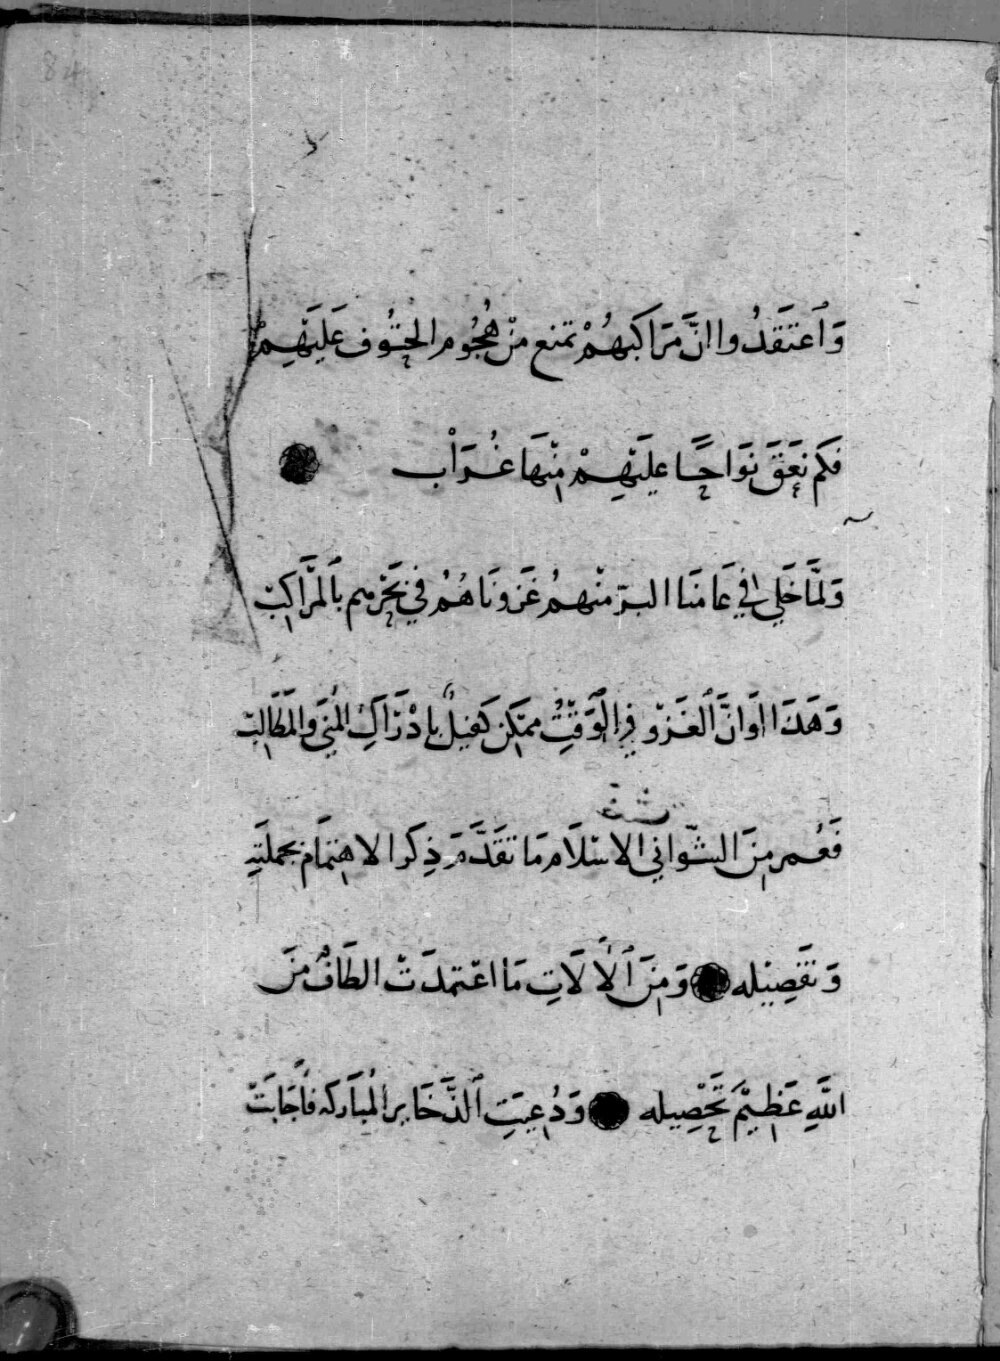 84
وَاَعتَقَدُوا انَّ مَرَاكبَهُمْ تمنع منْ هُجُومِ الحتُوف عَلَيَهِمْ
فكَم نعَقَ نوَاحًا عليَهِمْ منهَا غُرَاْب
وَلمَّا خَلي في عَامنَا البرّ منْهمُ غَزونَاهُمُ في بَحْرهم بالمَرَاكبِ
وَهَذَا اوَانَّ الغَزْو في الوَقتِ ممكن كَفيلٌ بادْرَاكِ المُنَى والمَطَالبِ
فَعُمر منَ الشّواني الاسْلاَم مَا تقَدَّمَ ذِكر الاهتمَام بجملَتِهِ
وَتفَصِيْله وَمنَ الاٰلاَتِ مَا اعْتمدَتْ الطَافُ منَ
اللَّهِ عَظِيمَ تَحْصِيله وَدُعِيَتِ الذَّخَاير المُبَاركه فأجَابَتْ